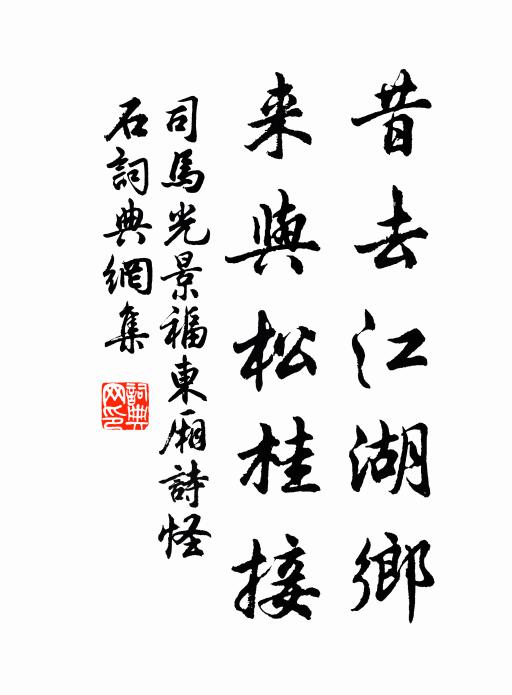 昔去江湖鄉
来與松桂接
司馬光景福東廂詩怪
石詞典網集
詞典
网印